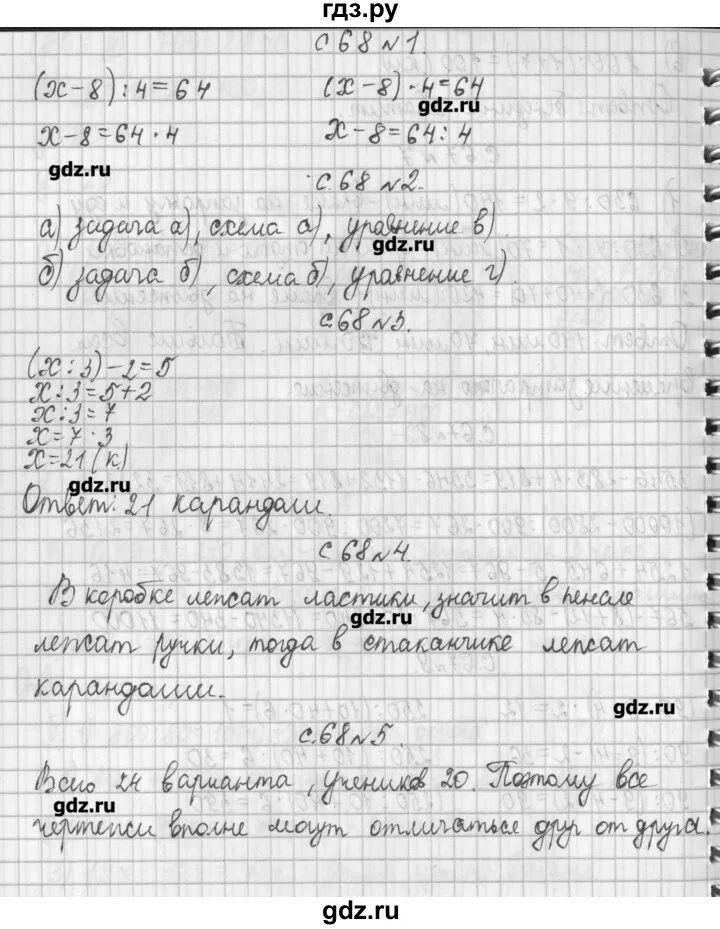 гдз.ру
с 68 №1.
(х-8):4=64 (х-8)·4=64
gdz.ru
х-8=64·4 х-8=64:4
gdz.ru
с.68 №2.
а) задача а), схема а), уравнение в).
gdz.ru
б) задача б), схема б), уравнение г).
с.68 №3.
(х:3)-2=5
х:3=5+2
х:3=7
х=7·3
х=21(к)
gdz.ru
Ответ: 21 карандаш.
с.68 №4.
В коробке лежат ластики, значит в пенале
gdz.ru
лежат ручки, тогда в стаканчике лежат
карандаши.
gdz.ru
с.68 №5.
Всего 24 варианта, учеников 20. Поэтому все
gdz.ru
чертежи вполне могут отличаться друг от друга.
gdz.ru